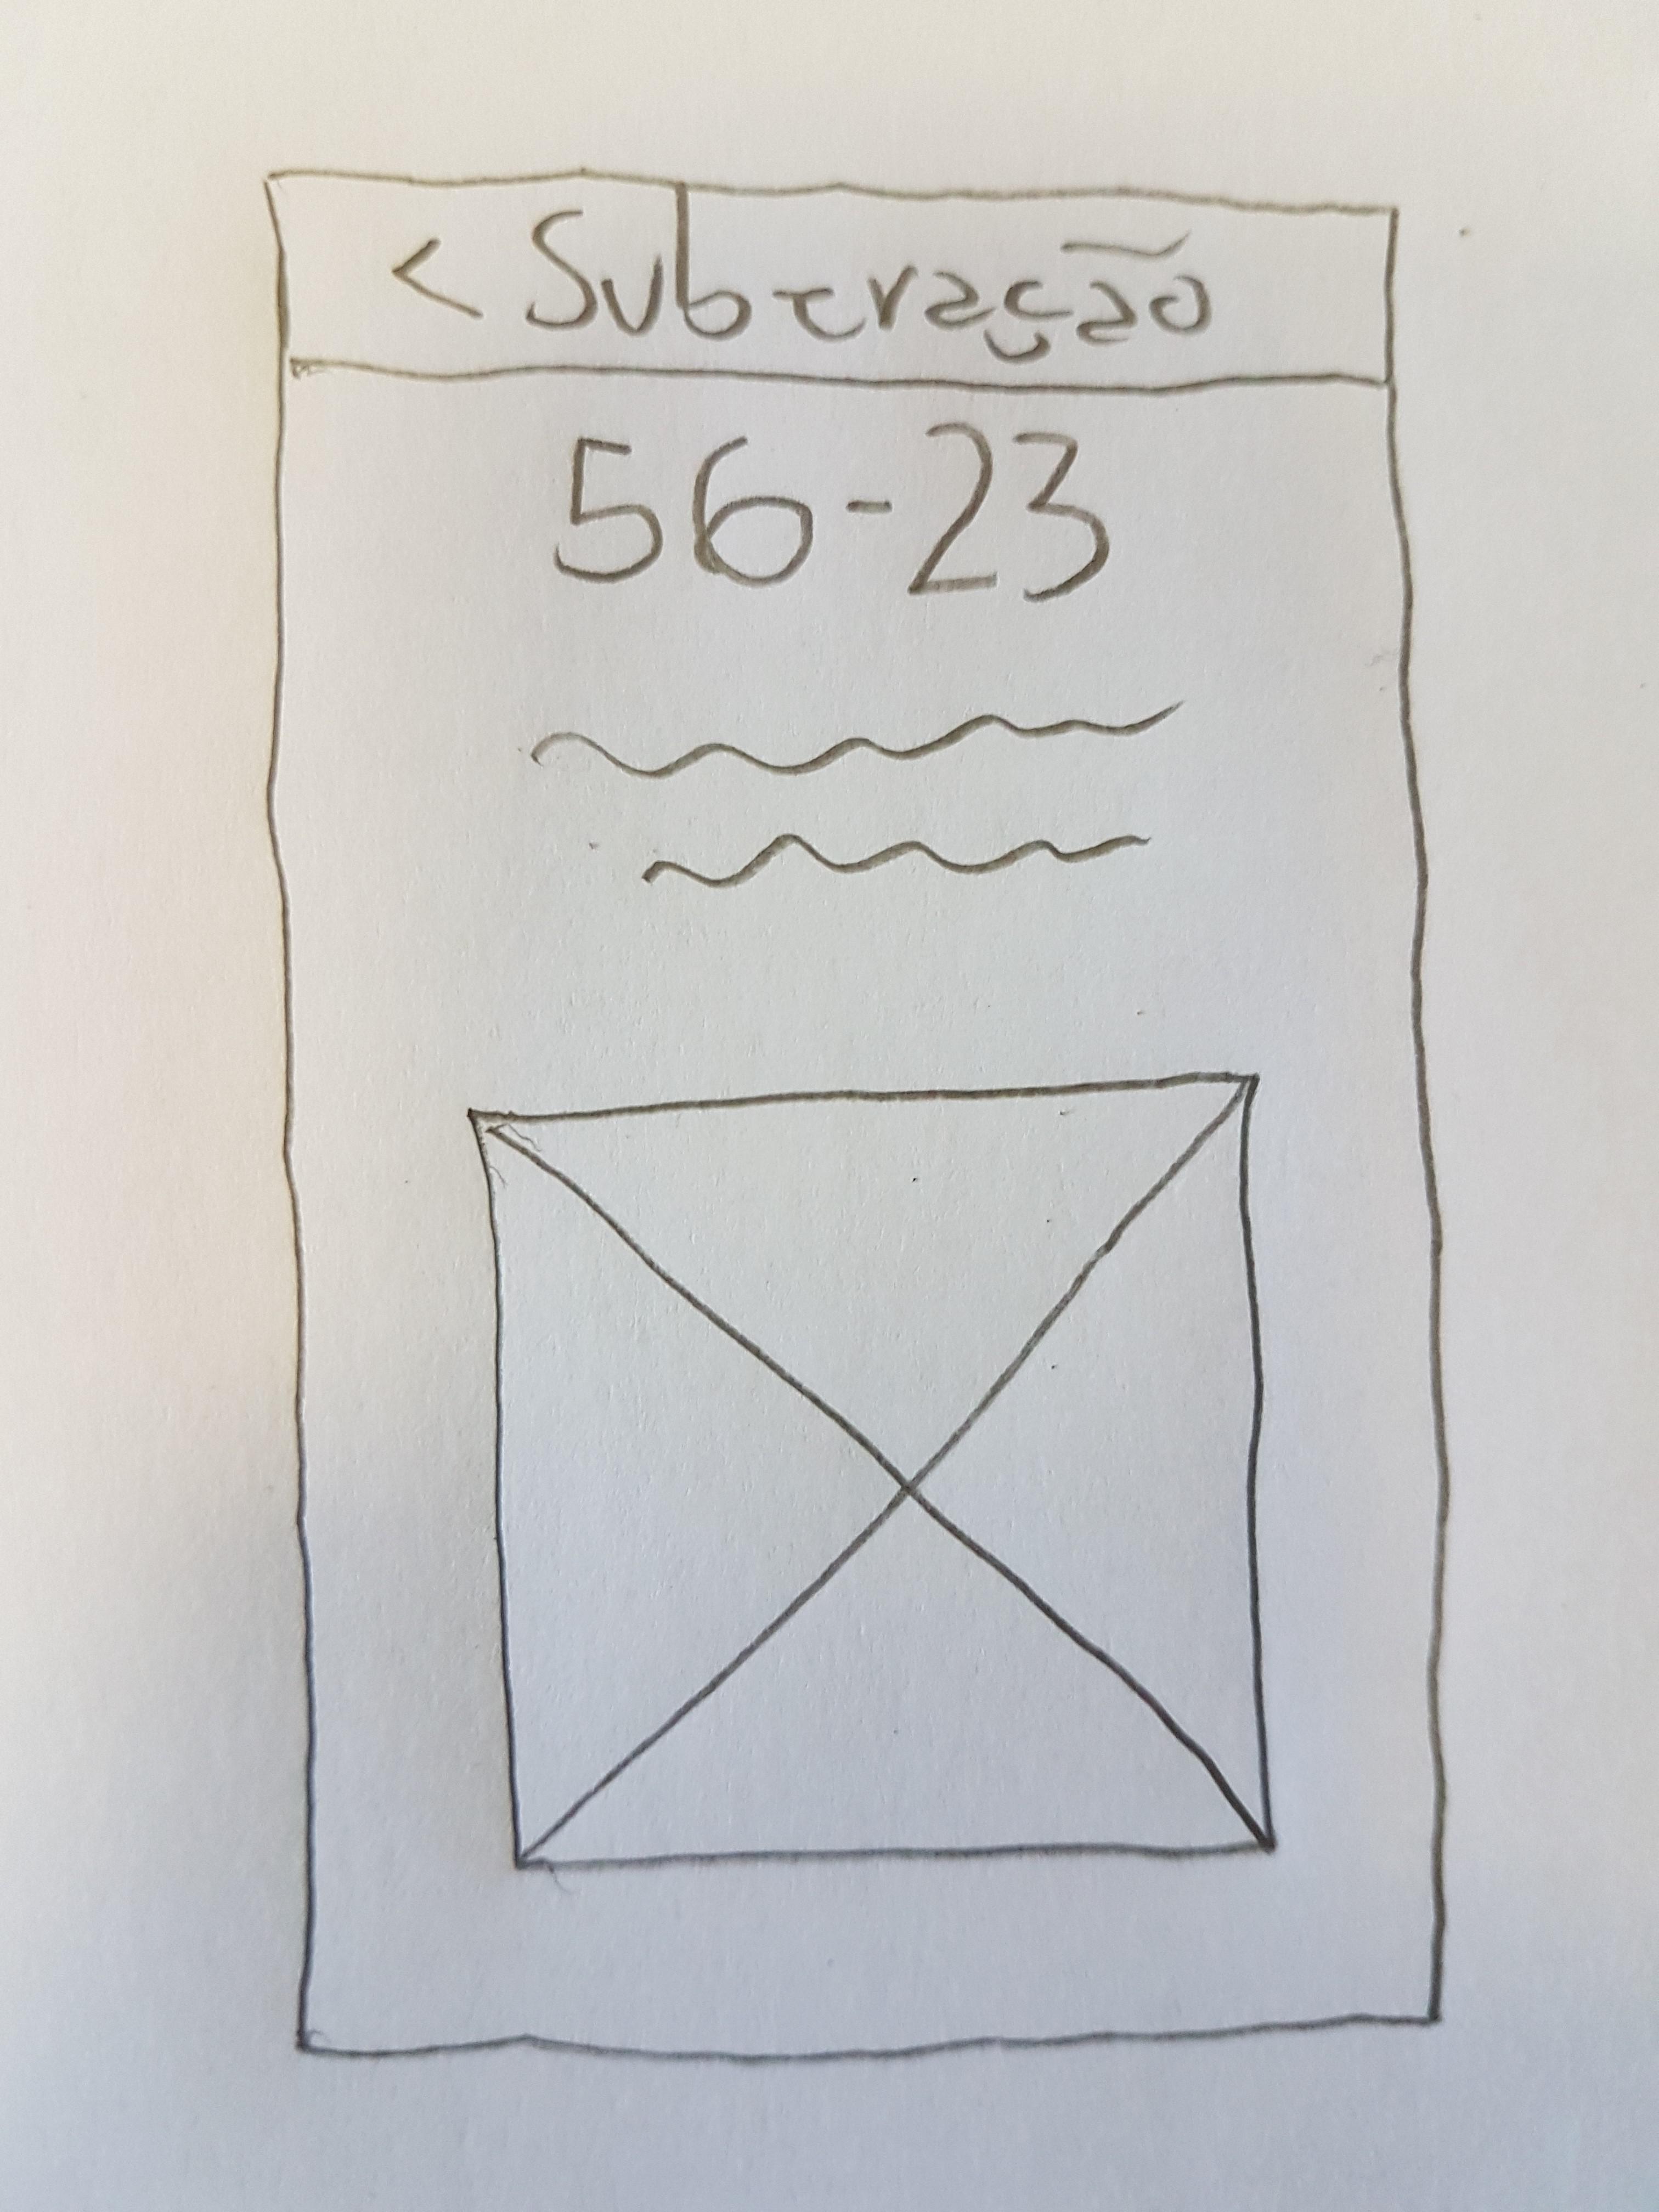 < Subtração
56-23